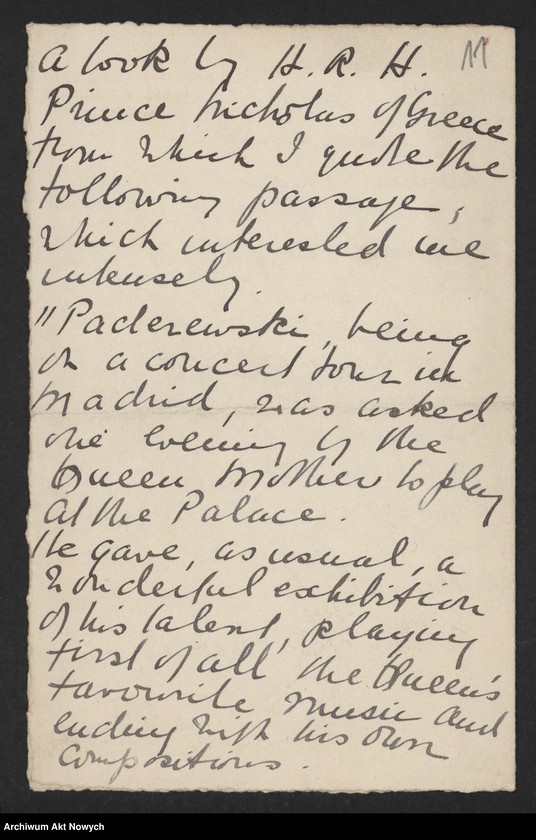 A book by H. R. H.
Prince Nicholas of Greece
from which I quote the
following passage,
which interested me
intensely.
"Paderewski, being
on a concert tour in
Madrid, was asked
one evening by the
Queen Mother to play
at the Palace.
He gave, as usual, a
wonderful exhibition
of his talent, playing
first of all the Queen's
favourite music and
ending with his own
compositions.
Archiwum Akt Nowych